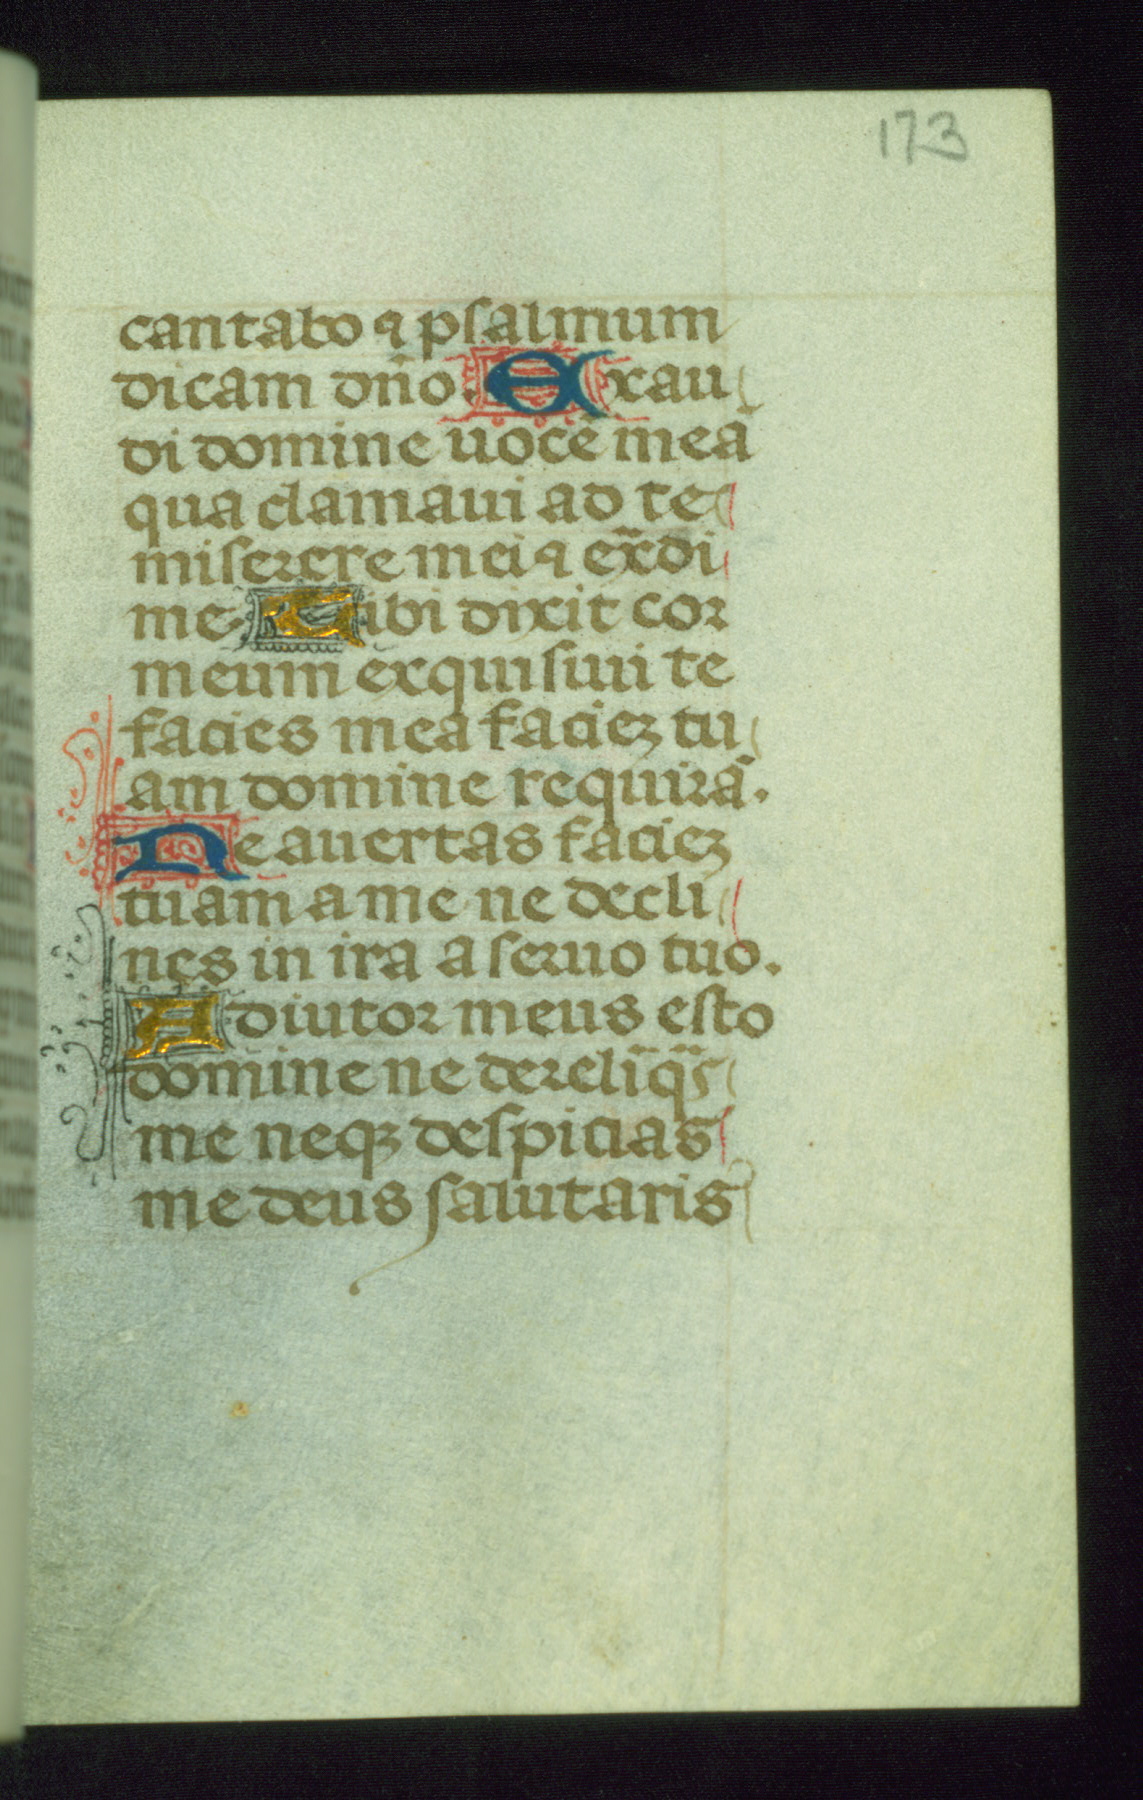 173
cantabo ⁊ psalmum
dicam dn̄o. Exau
di domine uocē meā
qua clamaui ad te
miserere mei ⁊ ex̄di
me. Tibi dixit cor
meum exquisiui te
facies mea facieꝫ tu
am domine requirā.
Ne auertas facieꝫ
tuam a me ne decli
nes in ira a seruo tuo.
Adiutor meus esto
domine ne derelīq̄s
me neqꝫ despicias
me deus salutaris